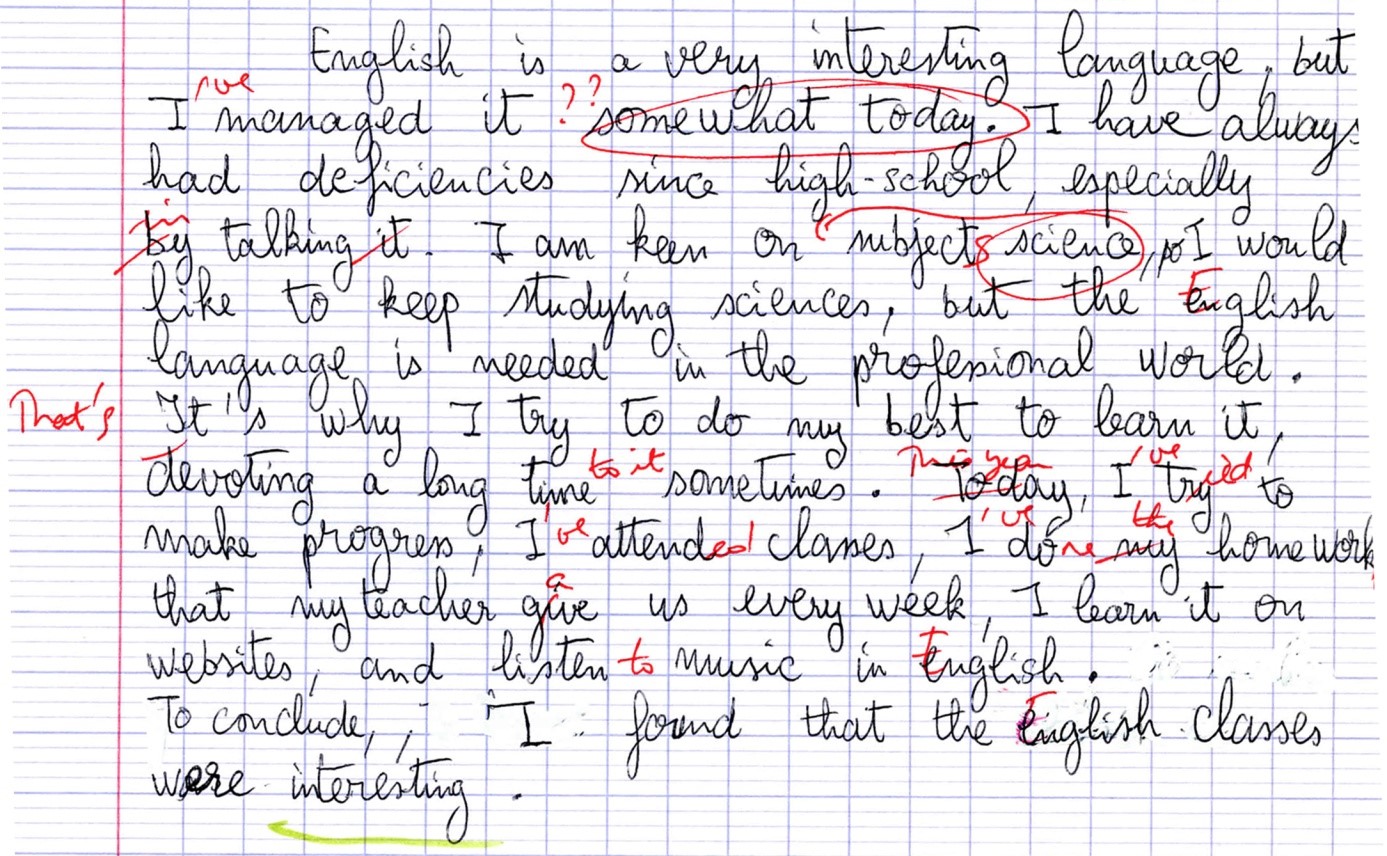 English is a very interesting language, but
've
I managed it ?? somewhat today. I have always
had deficiencies since high-school, especially
in
by talking it. I am keen on subjects science, so I would
like to keep studying sciences, but the English
language is needed in the professional world.
That's It's why I try to do my best to learn it,
devoting a long time to it sometimes. This year Today, I 've tryied to
make progress, I 've attended classes, I 've done the my homework
that my teacher gave us every week, I learn it on
websites, and listen to music in English.
To conclude, I found that the English classes
were interesting.